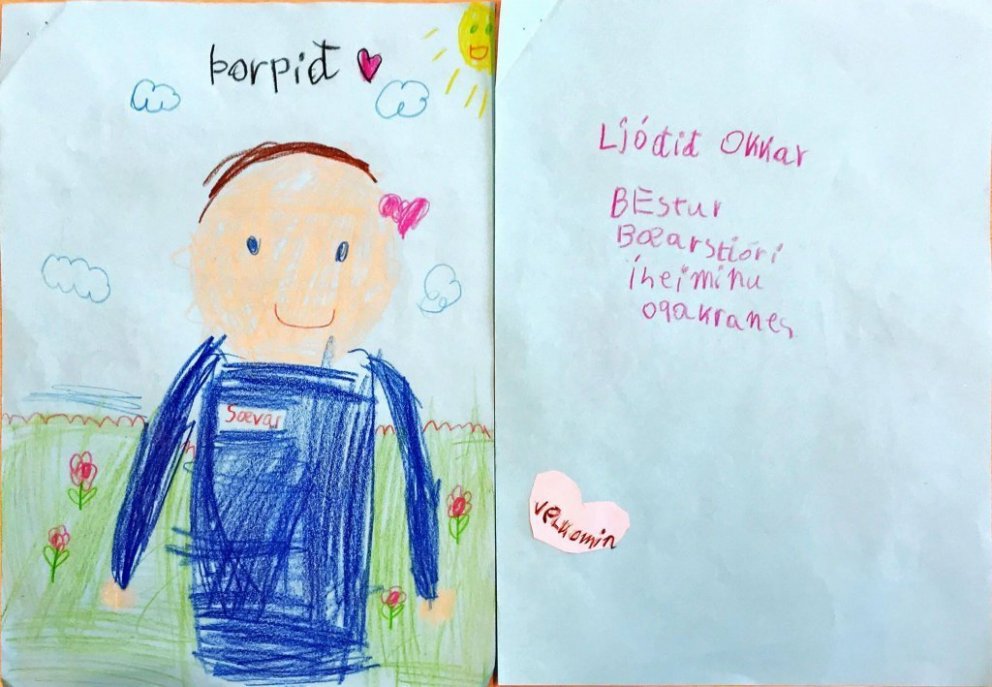 þorpið
Sævar
Ljóðið Okkar
BEstur
Bæarstióri
íheiminu
ogakranes
velkomin